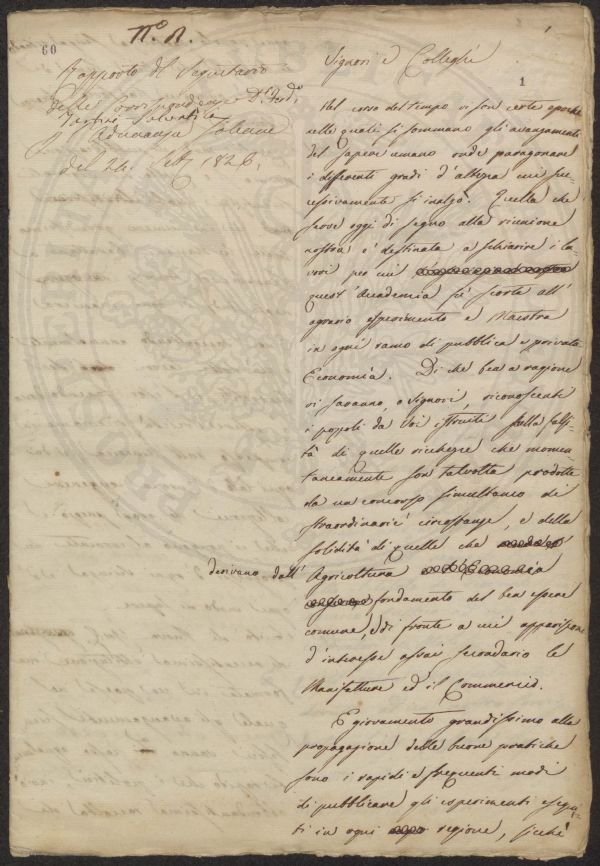 60
N.° 1.
Rapporto del Segretario
delle corrispondenze D.r Ferd.o
Tartini Salvatici
Adunanza Solenne
del 24. Sett. 1826.
1
Signori e Colleghi
Nel corso del tempo vi son certe epoche
nelle quali si sommano gli avanzamenti
del sapere umano onde paragonare
i differenti gradi d'altezza cui suc-
cessivamente si inalzò. Quella che
serve oggi di segno alla riunione
nostra è destinata a schiarire i la-
vori per cui
quest'Accademia fu scorta all'
agrario esperimento e Maestra
in ogni ramo di pubblica e privata
Economia. Di che ben a ragione
vi saranno, o Signori, riconoscenti
i popoli da Voi istruiti sulla falsi-
tà di quelle ricchezze che momen-
taneamente son talvolta prodotte
da un concorso simultaneo di
straordinarie circostanze, e della
solidità di quelle che
derivano dall' Agricoltura
fondamento del ben essere
comune, di fronte a cui appariscono
d'interesse assai secondario le
Manifatture ed il Commercio.
E giovamento grandissimo alla
propagazione delle buone pratiche
sono i rapidi e frequenti modi
di pubblicare gli esperimenti esegui-
ti in ogni regione, sicchè